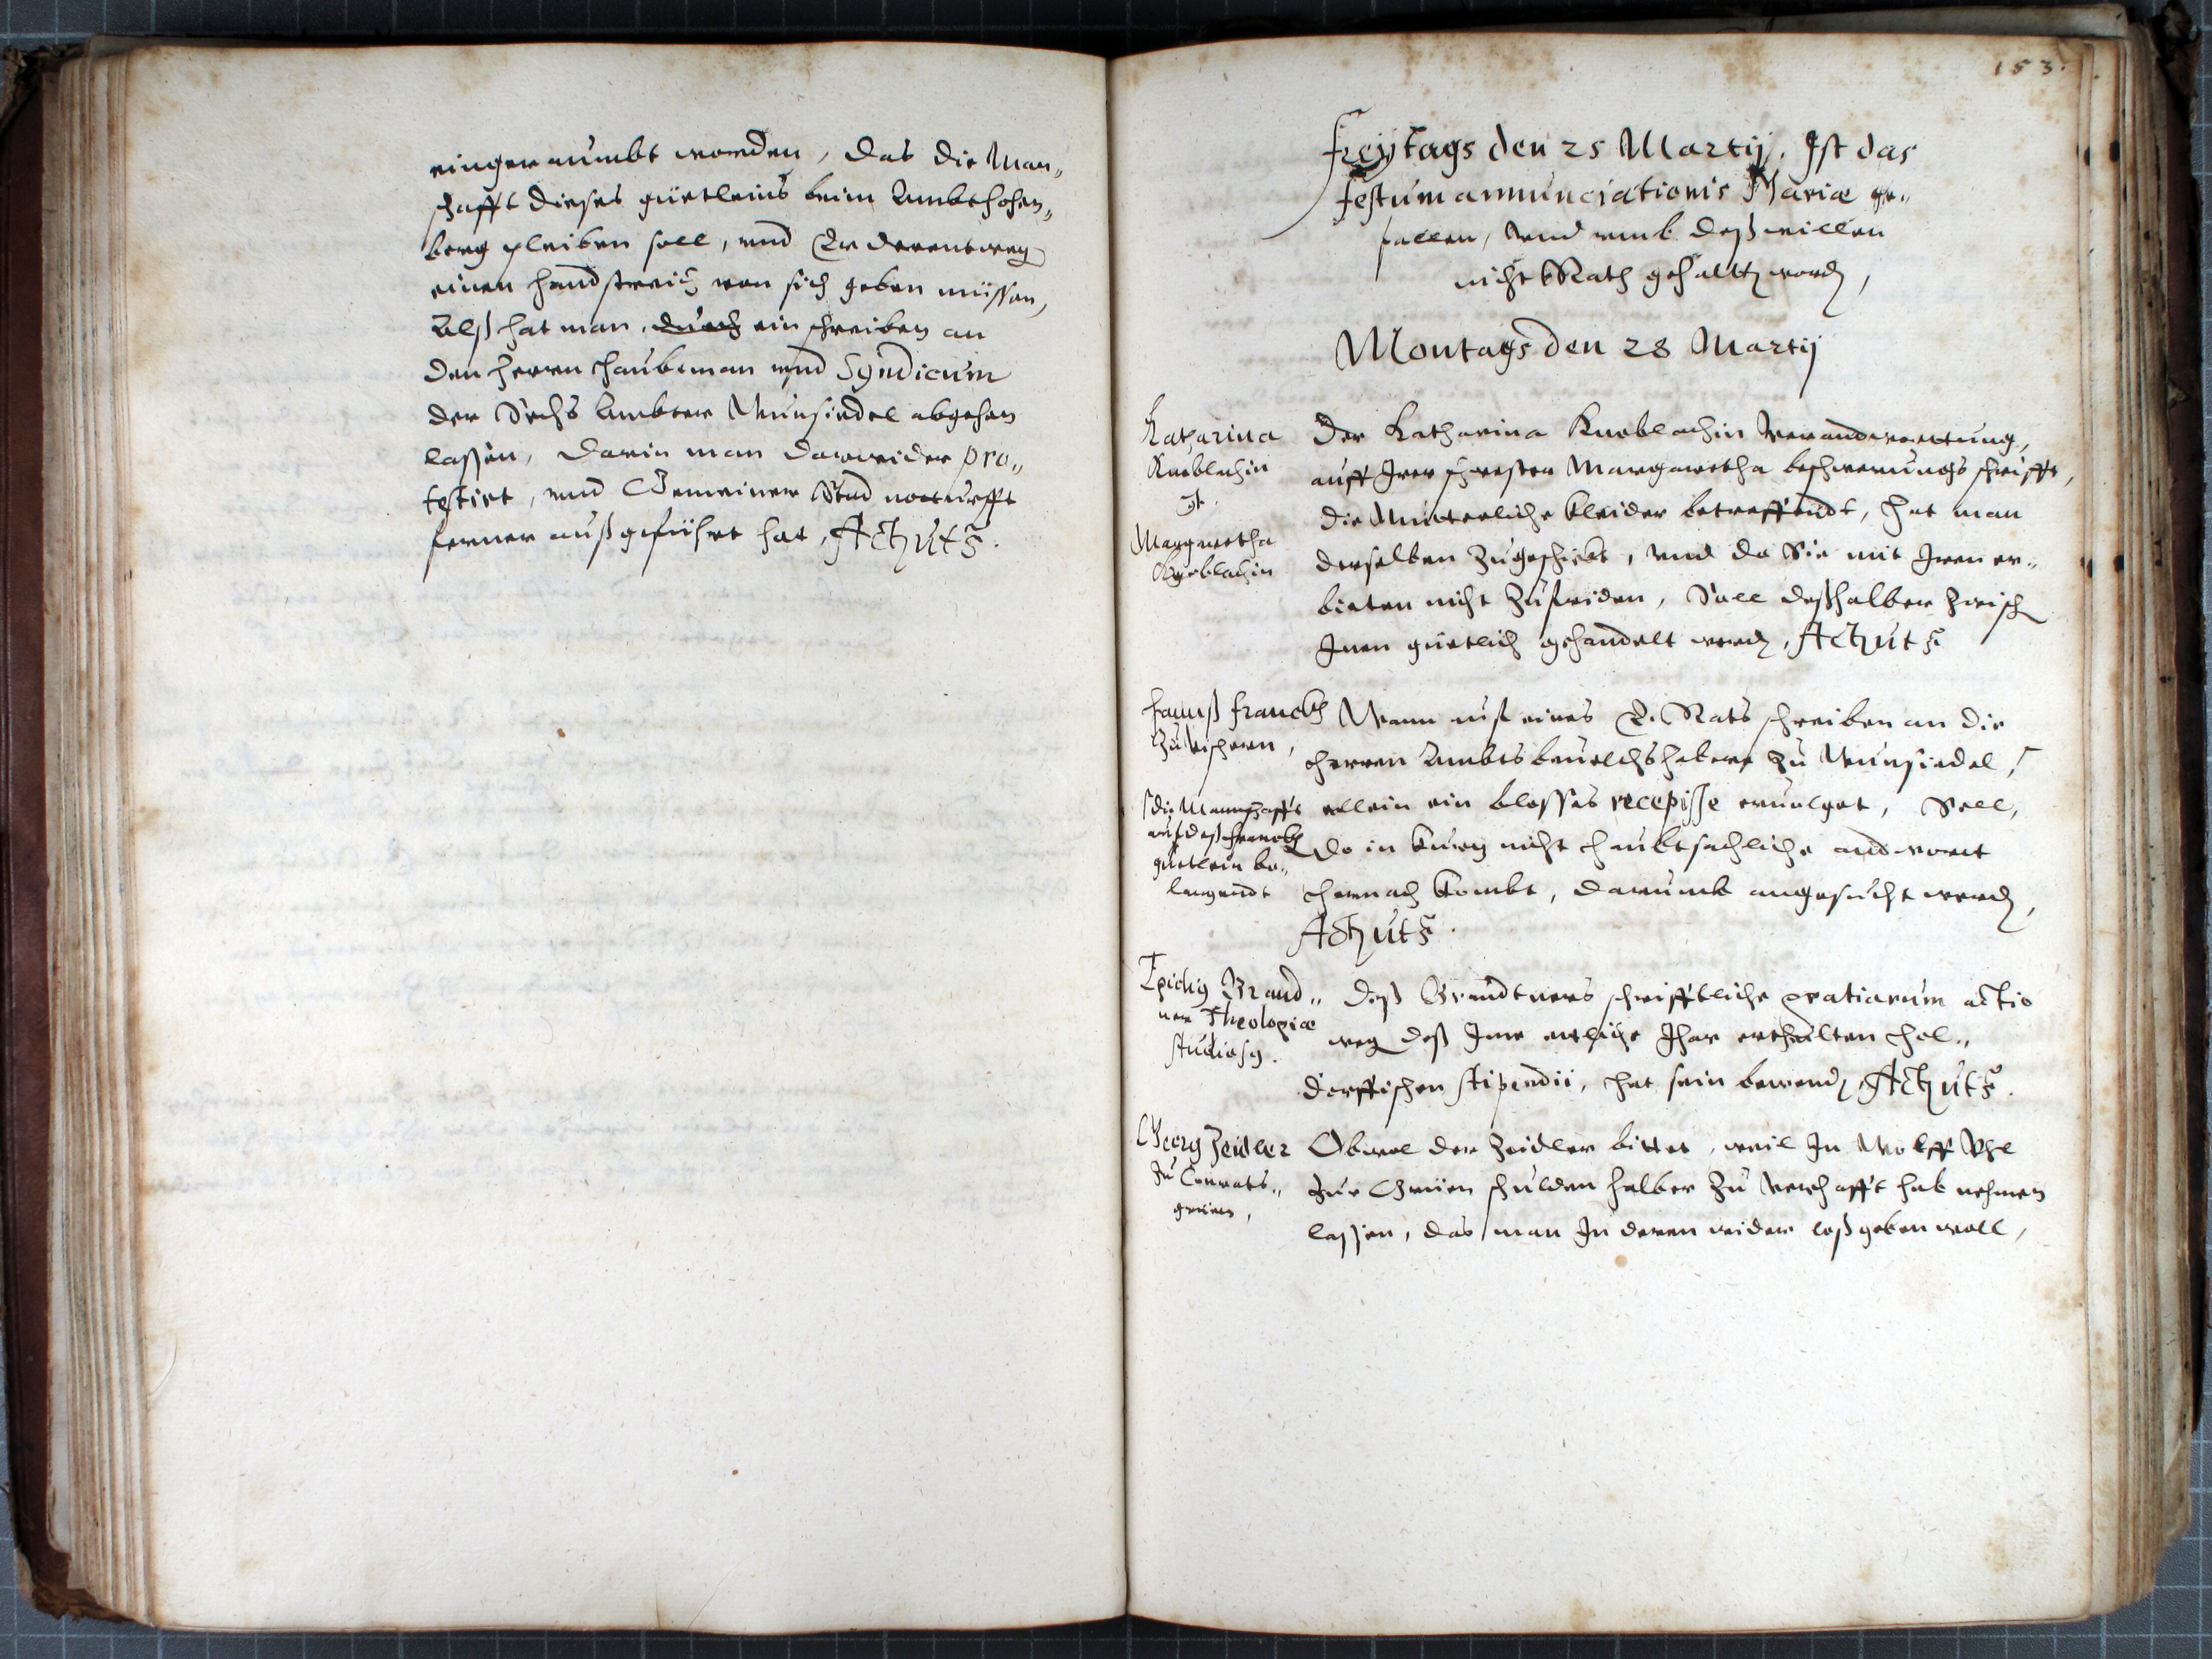 eingeraumbt worden, das die Man„
schafft dieses güetleins beim Ambt hohen„
berg pleiben soll, vnd Er derentweg
einen handstreich von sich geben müssen,
Alß hat man, durch ein schreiben an
den herrn haubtman vnd Syndicum
der Sechs Ambter Wunsiedel abgehen
lassen, darin man darwider pro„
testirt, vnd Gemeiner Stad notturfft
ferner außgeführt hat, Act. ut s.
153.
Freÿtags den 25 Martij. Ist das
festum annunciationis Mariæ ge„
fallen, vnd vmb deßwillen
nicht Rath gehalten word,
Montags den 28 Martij
Katharina
Knoblachin
Margaretha
Knoblachin
Der Katharina Knoblachin verandwortung,
auff Irer schwester Margaretha beschwerungs schrifft,
die Mütterliche kleider betreffendt, hat man
derselben zugeschickt, vnd da Sie mit Iren er„
bieten nicht zufriden, Soll deßhalber zwisch
Inen güetlich gehandelt werd, Act. ut s.
Hannß Franck
zu Fischern,
die Manschafft
auf deß Francken
güetlein be„
langendt
Wann auf eines E. Rats schreiben an die
herren Ambtsbeuelchshabere zu Wunsiedel,
allein ein blosses recepisse eruolget, Soll,
do in kurtz nicht haubtsachliche andwort
hernach kombt, darumb angesucht werd,
Act. ut s.
Brand„
ner Theologiæ
studiosq.
Deß Brandtners schrifftliche gratiarum actio
weg deß Ime etliche Jhar erthailten Hel„
dorffischen stipendii, hat sein bewend, Act. ut s.
Georg Zeidler
zu Conrats„
grüen,
Obwol der Zeidler bittet, weil In Wolff
zur Grüen schulden halber zu verhafft hab nehmen
lassen, das man In deren wider loß geben woll,